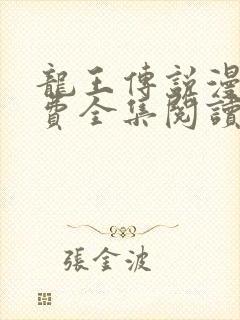 龍王傳說漫
費全集閱讀
張金波